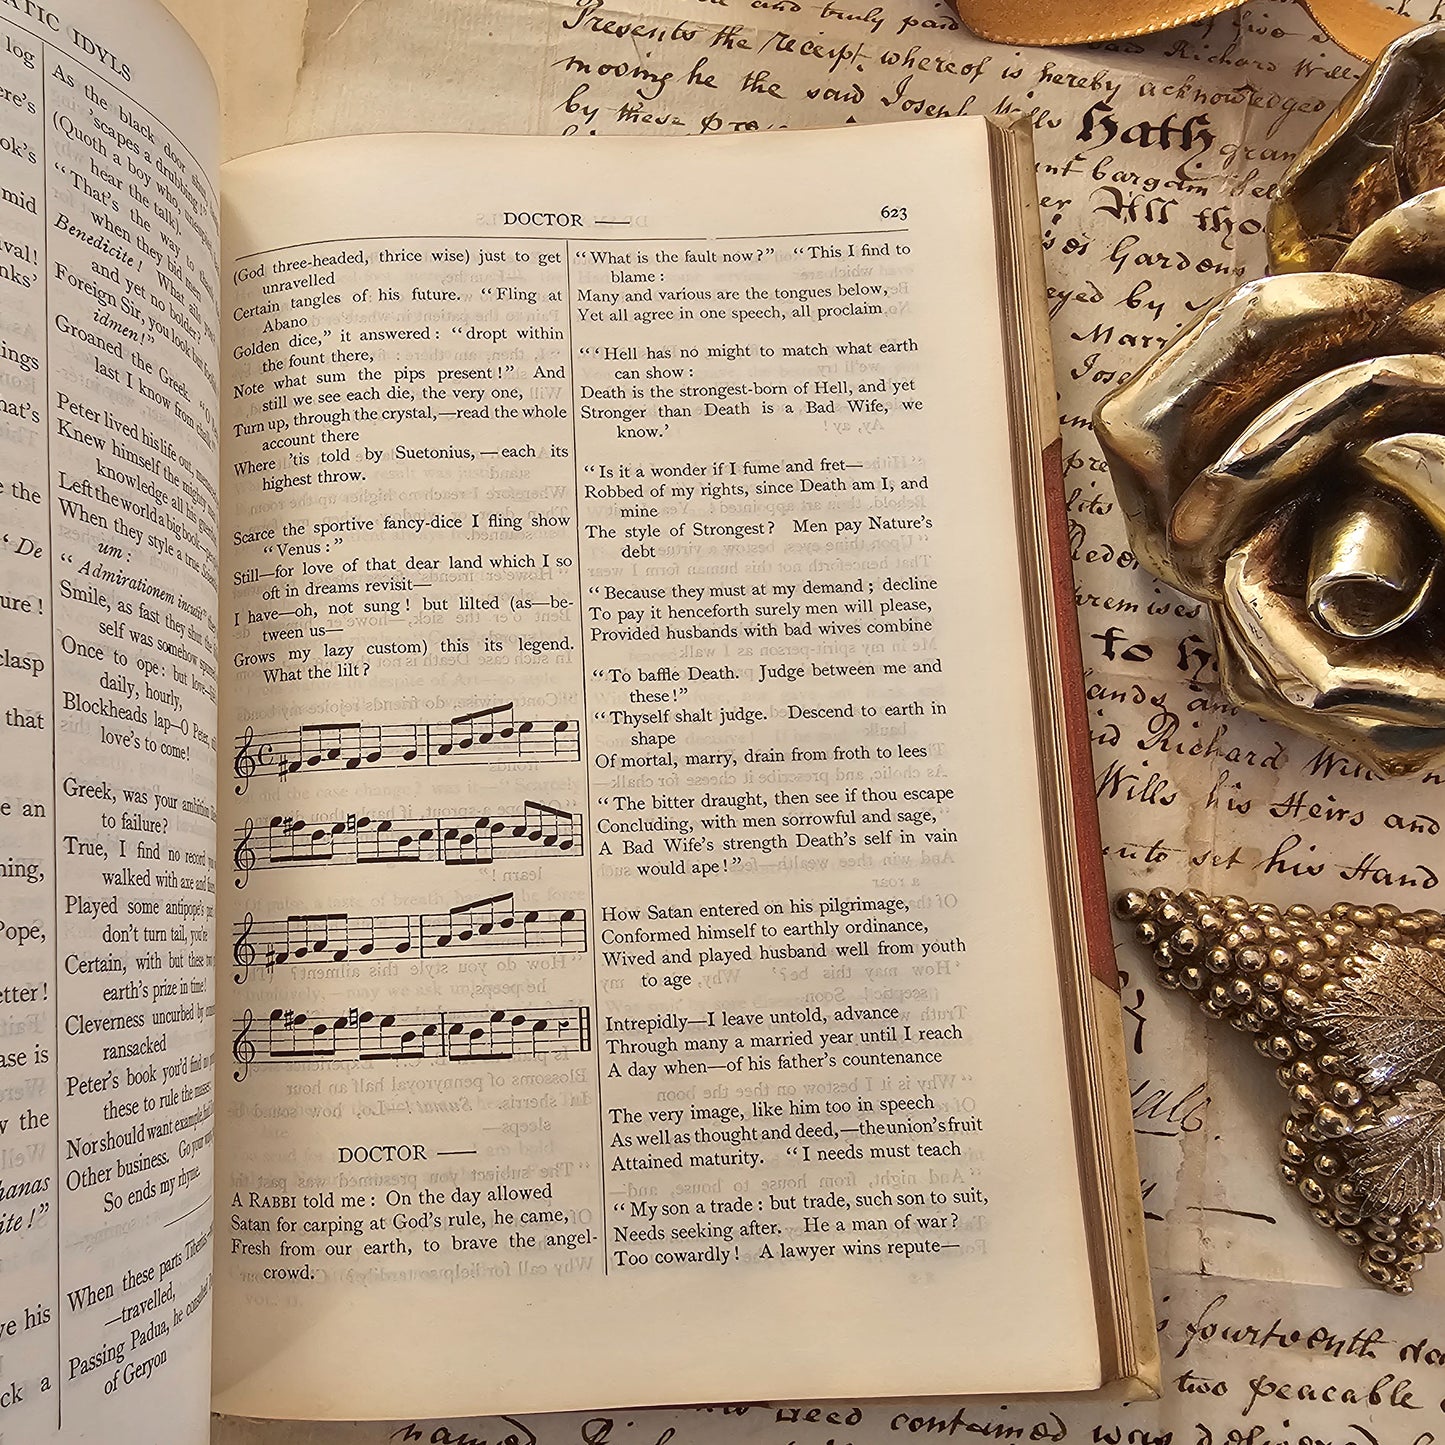 ATIC IDYLS
log
ere's
ok's
mid
val!
nks'
ings
hat's
e the
" De
ure !
clasp
that
e an
ning,
Pope,
etter !
ase is
y the
hanas
ite !"
ve his
ck a
As the black door
'scapes a drubbing!"
(Quoth a boy who,
hear the talk).
"That's the way to
when they bid men
Benedicite! What ails you
and yet no bolder?
Foreign Sir, you look but
idmen!"
Groaned the Greek.
last I know from chalk
Peter lived his life out,
Knew himself the mighty
knowledge all his
Left the world a big book—
When they style a true
um:
"Admirationem incutit"
Smile, as fast they shut the
self was somehow
Once to ope: but love—
daily, hourly,
Blockheads lap—O Peter,
love's to come!
Greek, was your ambition
to failure?
True, I find no record
walked with axe and
Played some antipope's
don't turn tail, you're
Certain, with but these
earth's prize in time!
Cleverness uncurbed by
ransacked
Peter's book you'd find no
these to rule the masses:
Nor should want example,
Other business. Go your
So ends my rhyme.
When these parts Tiberius
—travelled,
Passing Padua, he consulted
of Geryon
DOCTOR —— 623
(God three-headed, thrice wise) just to get
unravelled
Certain tangles of his future. "Fling at
Abano
Golden dice," it answered: "dropt within
the fount there,
Note what sum the pips present!" And
still we see each die, the very one,
Turn up, through the crystal,—read the whole
account there
Where 'tis told by Suetonius,—each its
highest throw.
Scarce the sportive fancy-dice I fling show
"Venus:"
Still—for love of that dear land which I so
oft in dreams revisit—
I have—oh, not sung! but lilted (as—be-
tween us—
Grows my lazy custom) this its legend.
What the lilt?
DOCTOR ——
A RABBI told me: On the day allowed
Satan for carping at God's rule, he came,
Fresh from our earth, to brave the angel-
crowd.
"What is the fault now?" "This I find to
blame:
Many and various are the tongues below,
Yet all agree in one speech, all proclaim
"'Hell has no might to match what earth
can show:
Death is the strongest-born of Hell, and yet
Stronger than Death is a Bad Wife, we
know.'
"Is it a wonder if I fume and fret—
Robbed of my rights, since Death am I, and
mine
The style of Strongest? Men pay Nature's
debt
"Because they must at my demand; decline
To pay it henceforth surely men will please,
Provided husbands with bad wives combine
"To baffle Death. Judge between me and
these!"
"Thyself shalt judge. Descend to earth in
shape
Of mortal, marry, drain from froth to lees
"The bitter draught, then see if thou escape
Concluding, with men sorrowful and sage,
A Bad Wife's strength Death's self in vain
would ape!"
How Satan entered on his pilgrimage,
Conformed himself to earthly ordinance,
Wived and played husband well from youth
to age
Intrepidly—I leave untold, advance
Through many a married year until I reach
A day when—of his father's countenance
The very image, like him too in speech
As well as thought and deed,—the union's fruit
Attained maturity. "I needs must teach
"My son a trade: but trade, such son to suit,
Needs seeking after. He a man of war?
Too cowardly! A lawyer wins repute—
and truly paid
of five
Presents the receipt whereof is hereby acknowledged
said Richard Will
moving he the said Joseph Wills hath gran
by these
bargain
All tho
Gardens
eyed by
Marri
Jose
premises
to h
hands and
Richard Wills
Wills his Heirs and
unto set his Hand
fourteenth da
two peaceable
named
Deed contained was delivered